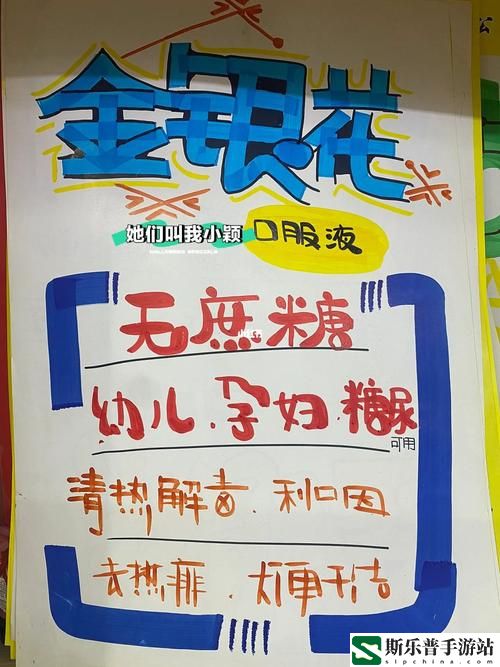 金银花
她们叫我小颖
口服液
无蔗糖
幼儿.孕妇.糖尿
可用
清热解毒.利口因
去热痱.大便干洁
斯乐普手游站
slpchina.com